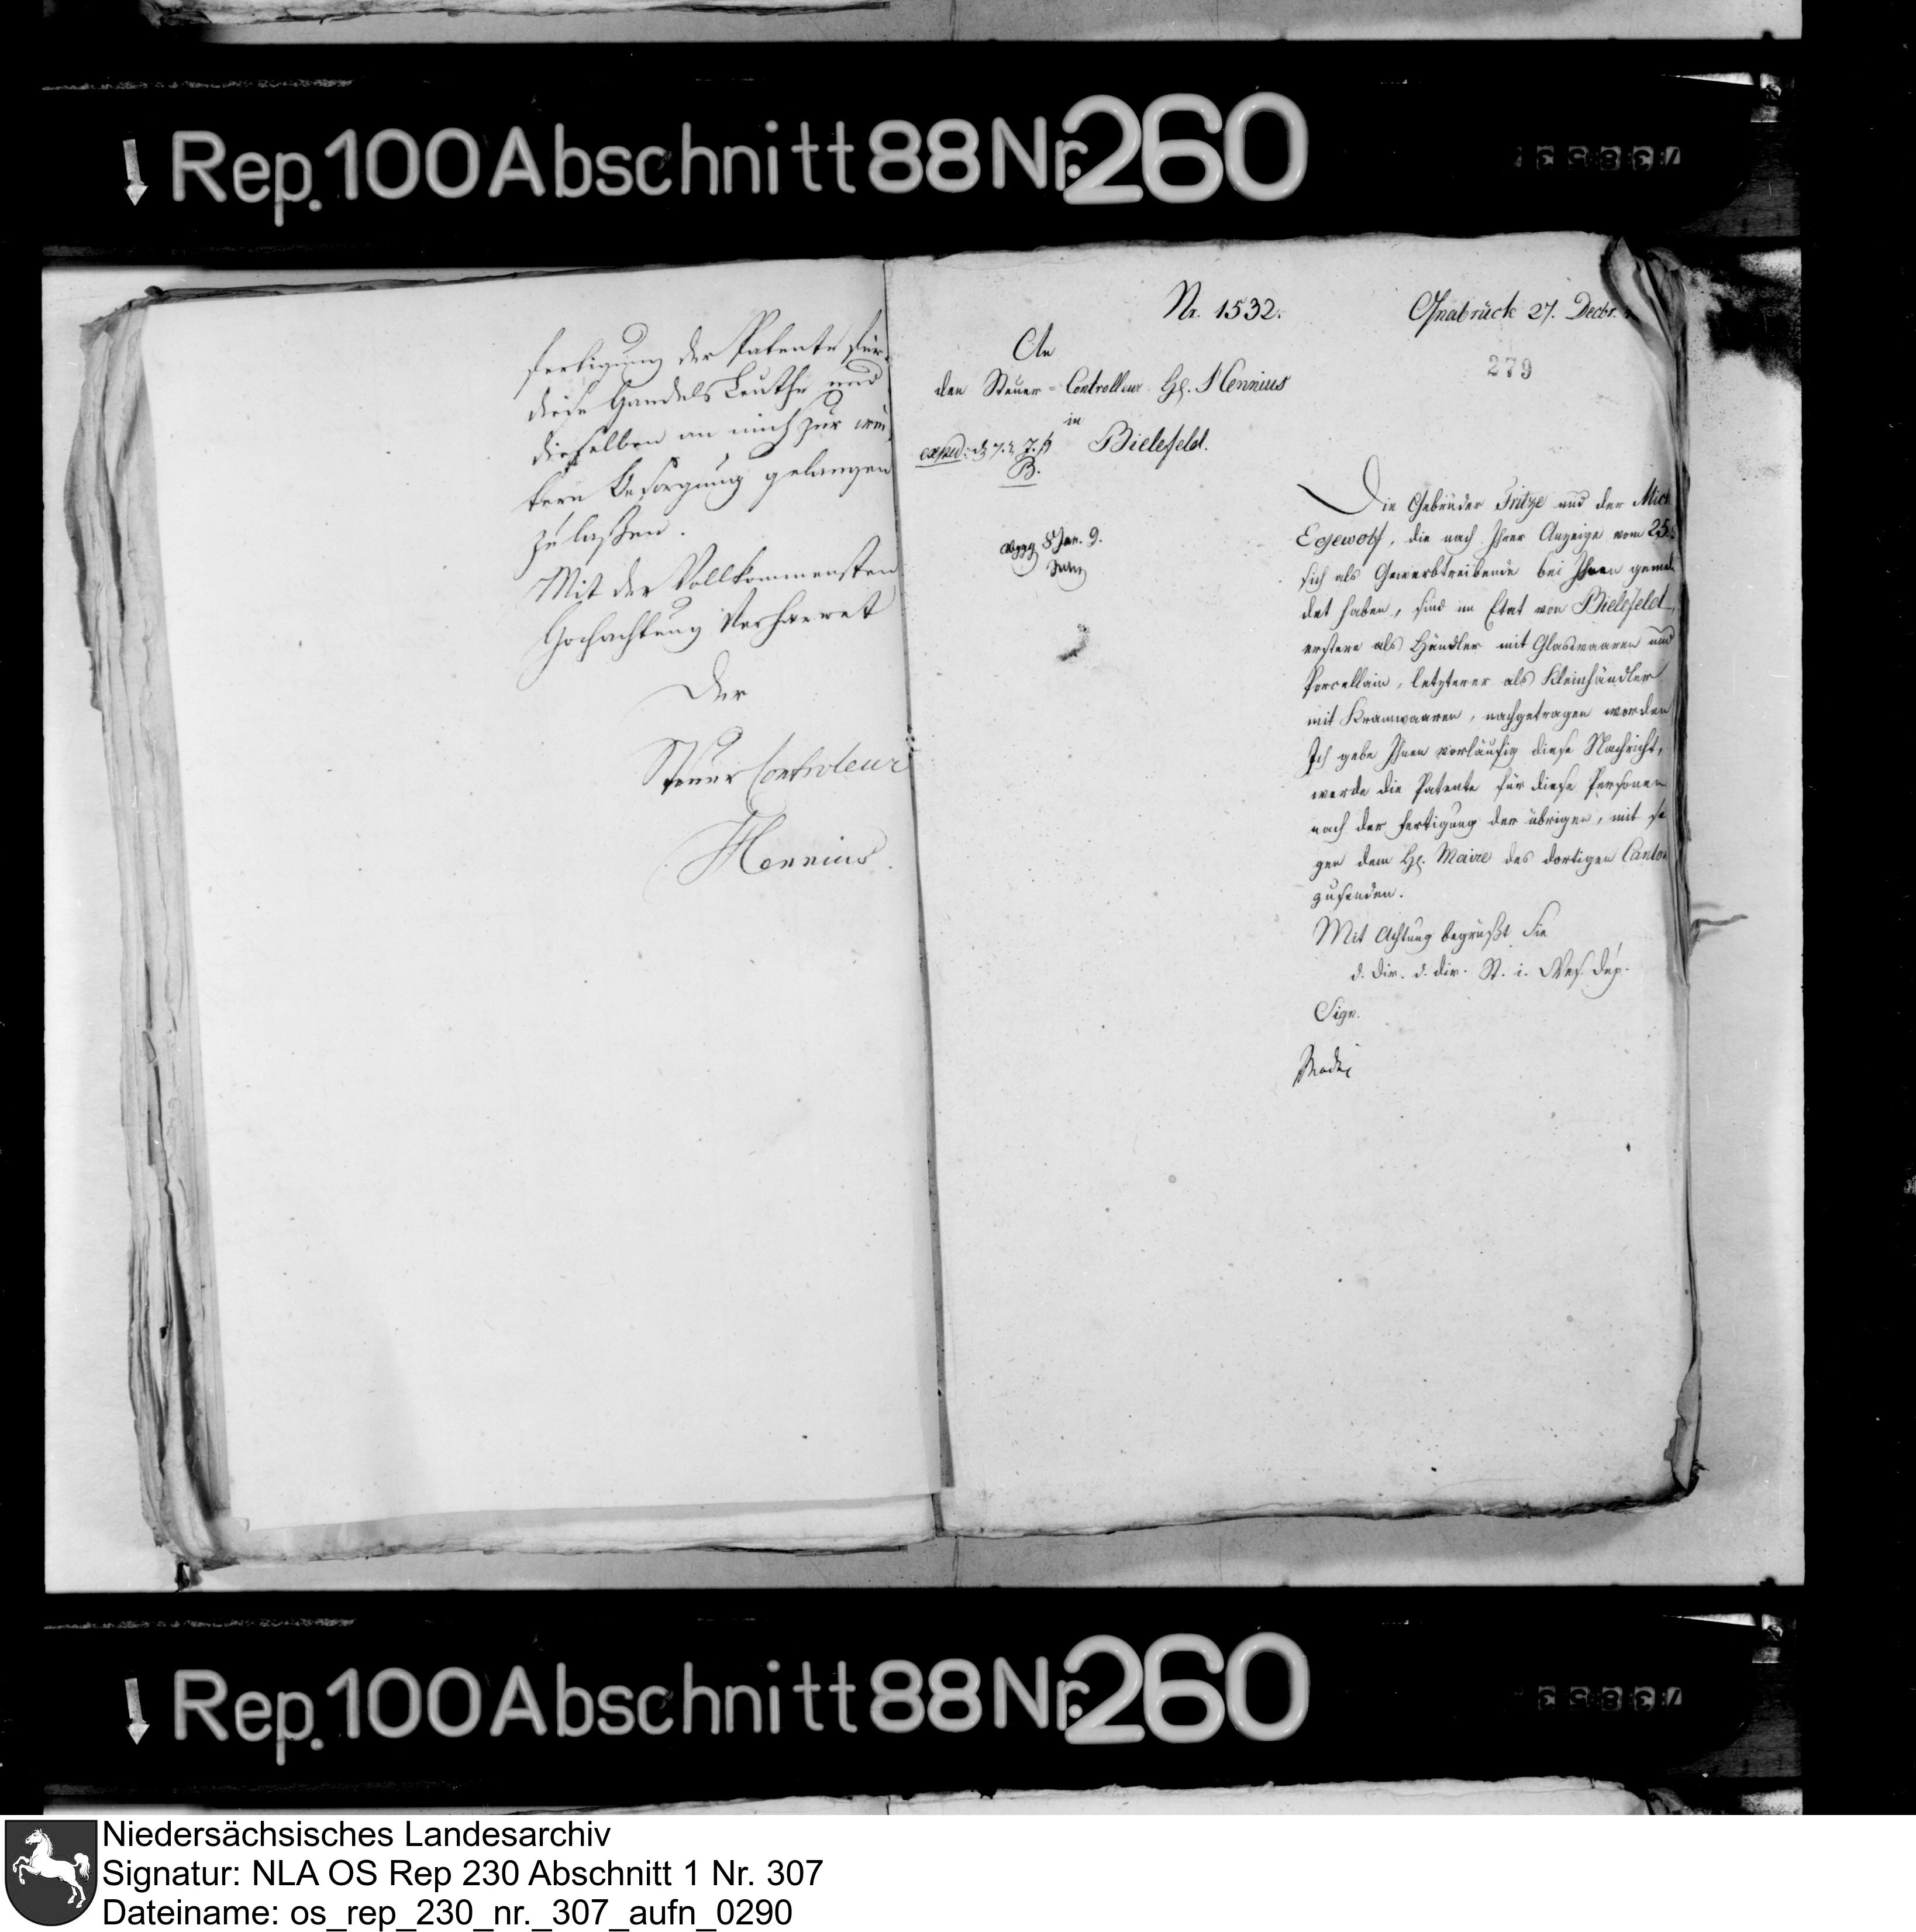 Rep. 100 Abschnitt 88 Nr. 260
fertigung der Patente für
diese Handels Leuthe und
dieselben an mich zur wei
tern Besorgung gelangen
zu laßen.
Mit der Vollkommensten
Hochachtung Verharret
Der
Steuer Controleur
Hennius.
Nr. 1532.
Osnabrück 27. Decbr.
279
An
den Steuer-Controlleur H. Hennius
in
Bielefeld.
exped:
B.
Jan. 9.
Die Gebrüder Fritze und der Mich
Egewolf, die nach Ihrer Anzeige vom 25
sich als Gewerbtreibende bei Ihnen gemel
det haben, sind im Etat von Bielefeld,
erstere als Händler mit Glaswaaren und
Porcellain, letzterer als Kleinhändler
mit Kramwaaren, nachgetragen worden
Ich gebe Ihnen vorläufig diese Nachricht,
werde die Patente für diese Personen
nach der Fertigung der übrigen, mit je
gen dem H. Maire des dortigen Canton
zusenden.
Mit Achtung begrüßt Sie
d. Dir. d. dir. St. i. Wes. Dép.
Sign.
Rep. 100 Abschnitt 88 Nr. 260
Niedersächsisches Landesarchiv
Signatur: NLA OS Rep 230 Abschnitt 1 Nr. 307
Dateiname: os_rep_230_nr._307_aufn_0290